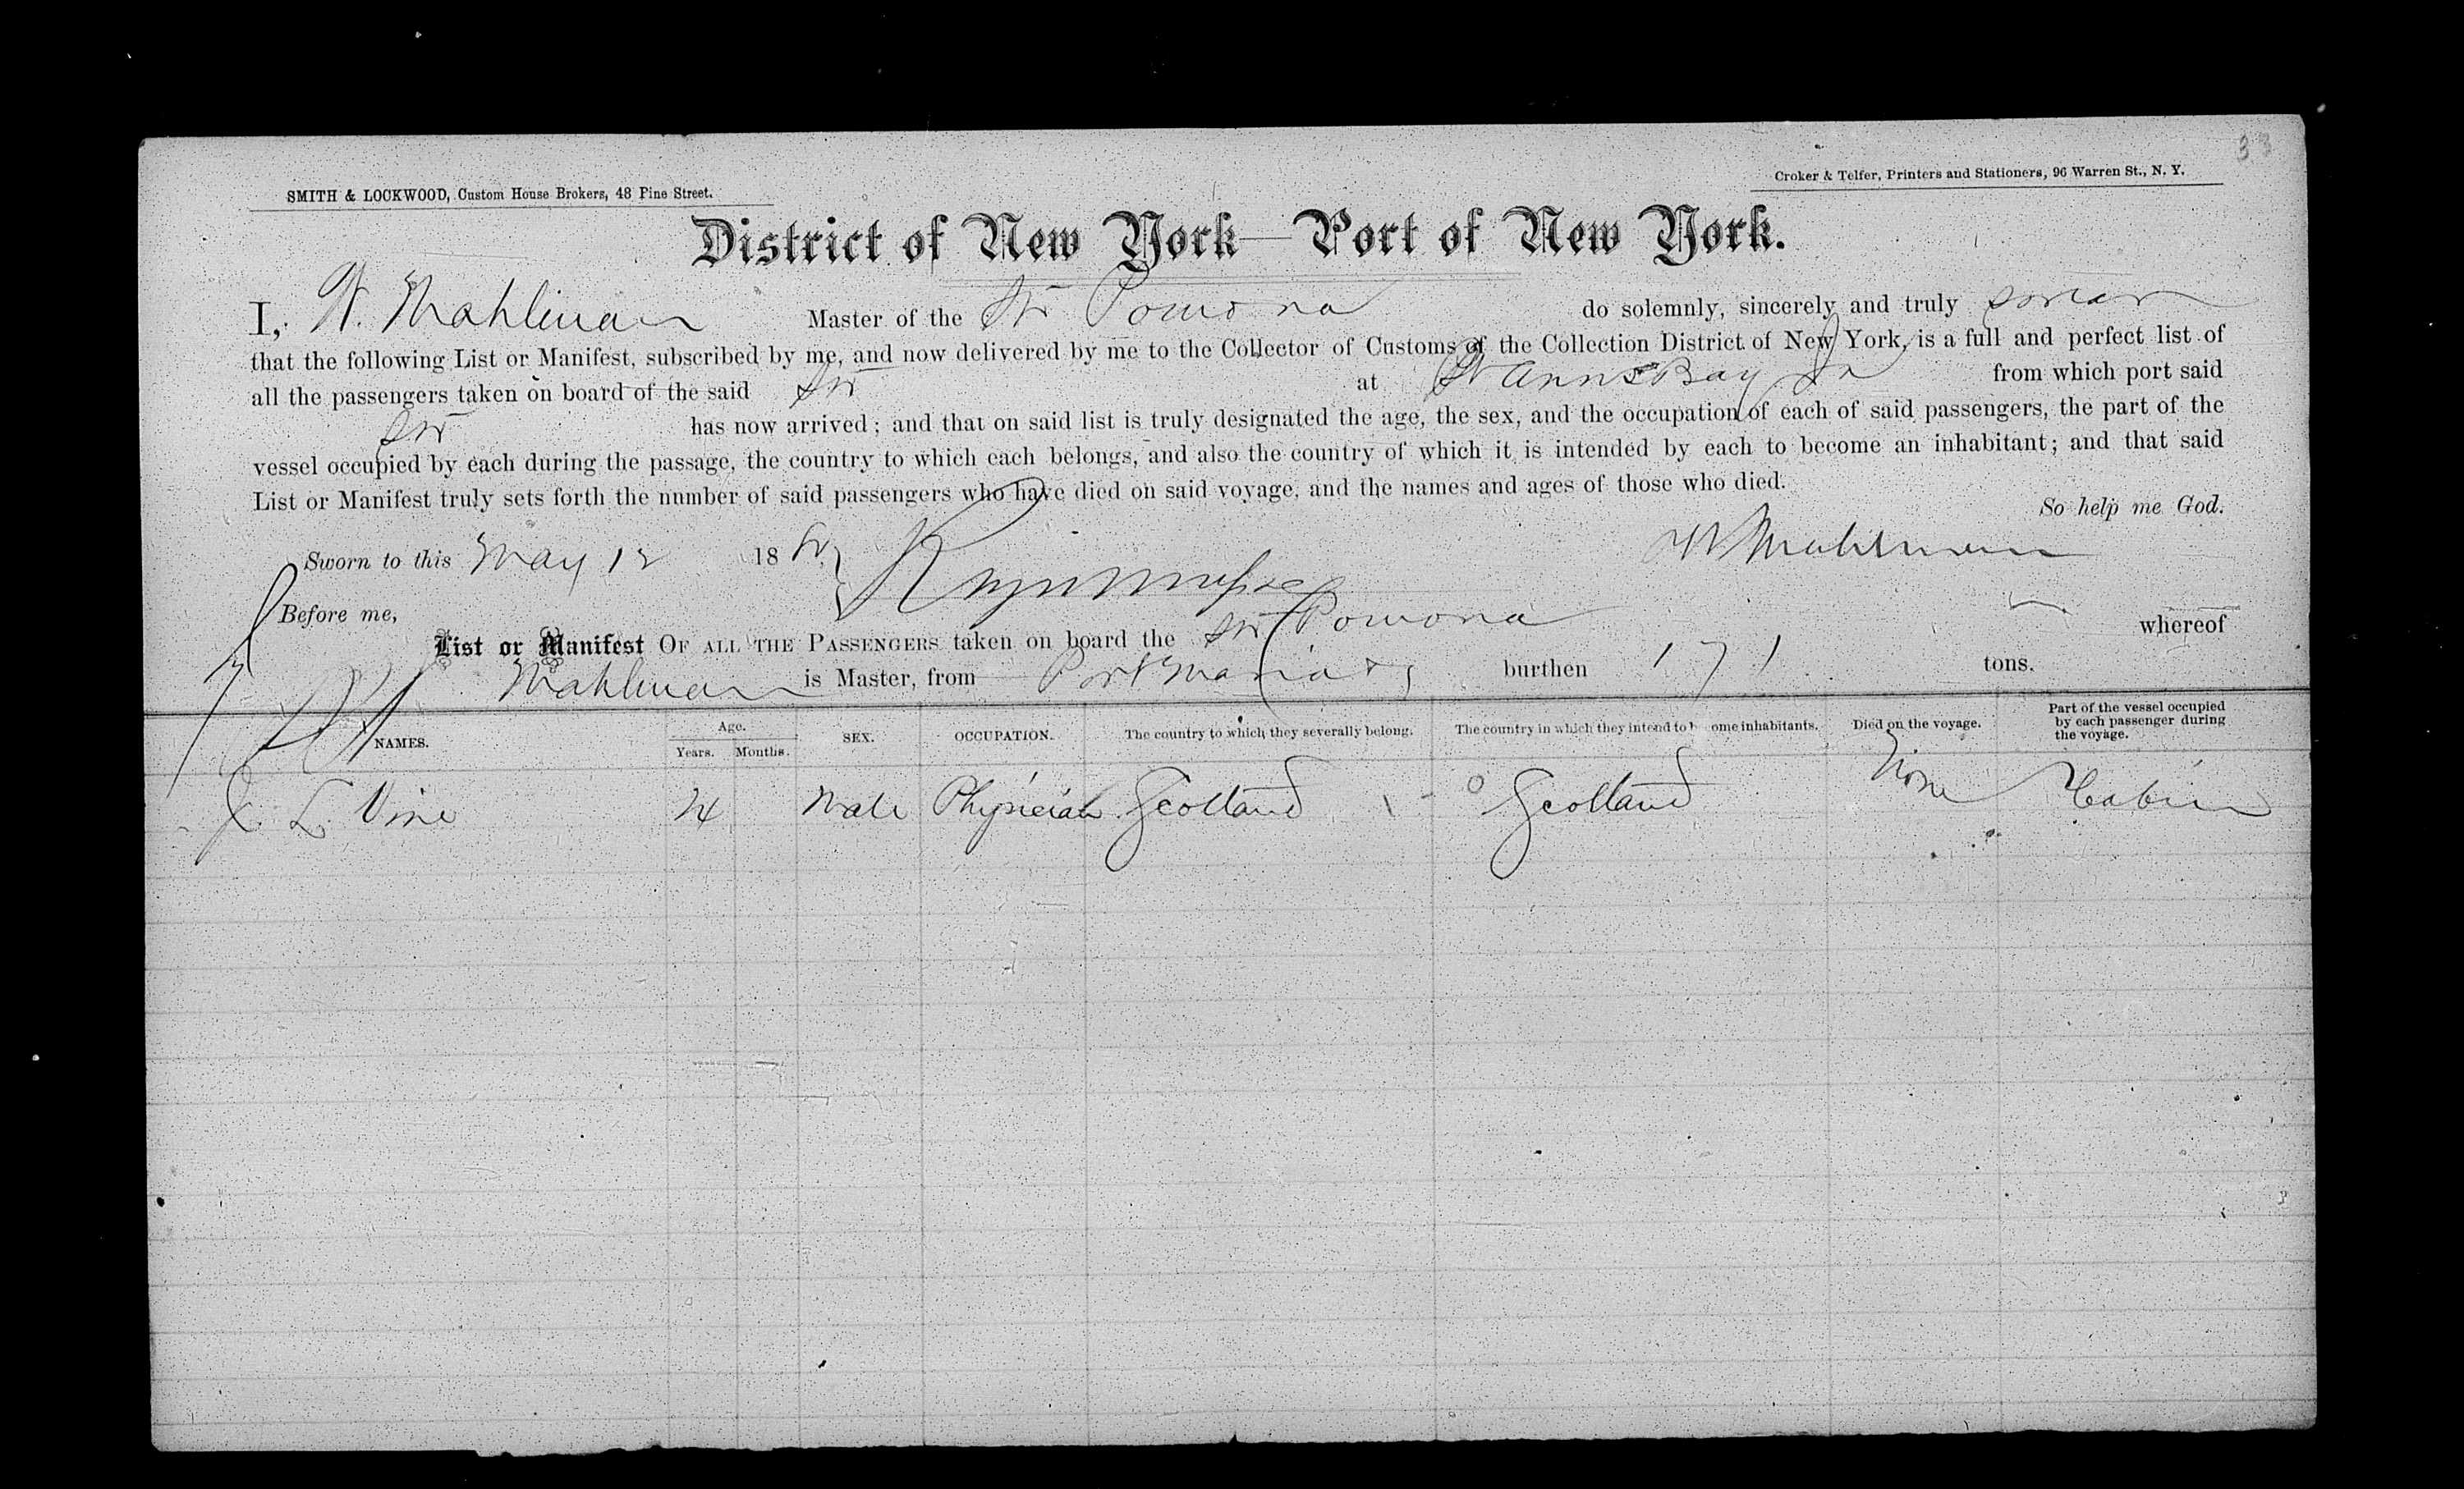 33
SMITH & LOCKWOOD, Custom House Brokers, 48 Pine Street.
Croker & Telfer, Printers and Stationers, 96 Warren St., N. Y.
District of New York—Port of New York.
I, W. Mahlman Master of the Str Pomona do solemnly, sincerely and truly swear
that the following List or Manifest, subscribed by me, and now delivered by me to the Collector of Customs of the Collection District of New York, is a full and perfect list of
all the passengers taken on board of the said Str at St Anns Bay Ja from which port said
Str has now arrived; and that on said list is truly designated the age, the sex, and the occupation of each of said passengers, the part of the
vessel occupied by each during the passage, the country to which each belongs, and also the country of which it is intended by each to become an inhabitant; and that said
List or Manifest truly sets forth the number of said passengers who have died on said voyage, and the names and ages of those who died.
So help me God.
Sworn to this May 12 18 W Mahlman
Before me,
List or Manifest OF ALL THE PASSENGERS taken on board the Str Pomona whereof
Mahlman is Master, from Port Maria burthen 171 tons.
NAMES. Age. Years. Months. SEX. OCCUPATION. The country to which they severally belong. The country in which they intend to b ome inhabitants. Died on the voyage. Part of the vessel occupied by each passenger during the voyage.
J. L. Vine 24 Male Physician Scotland Scotland None Cabin